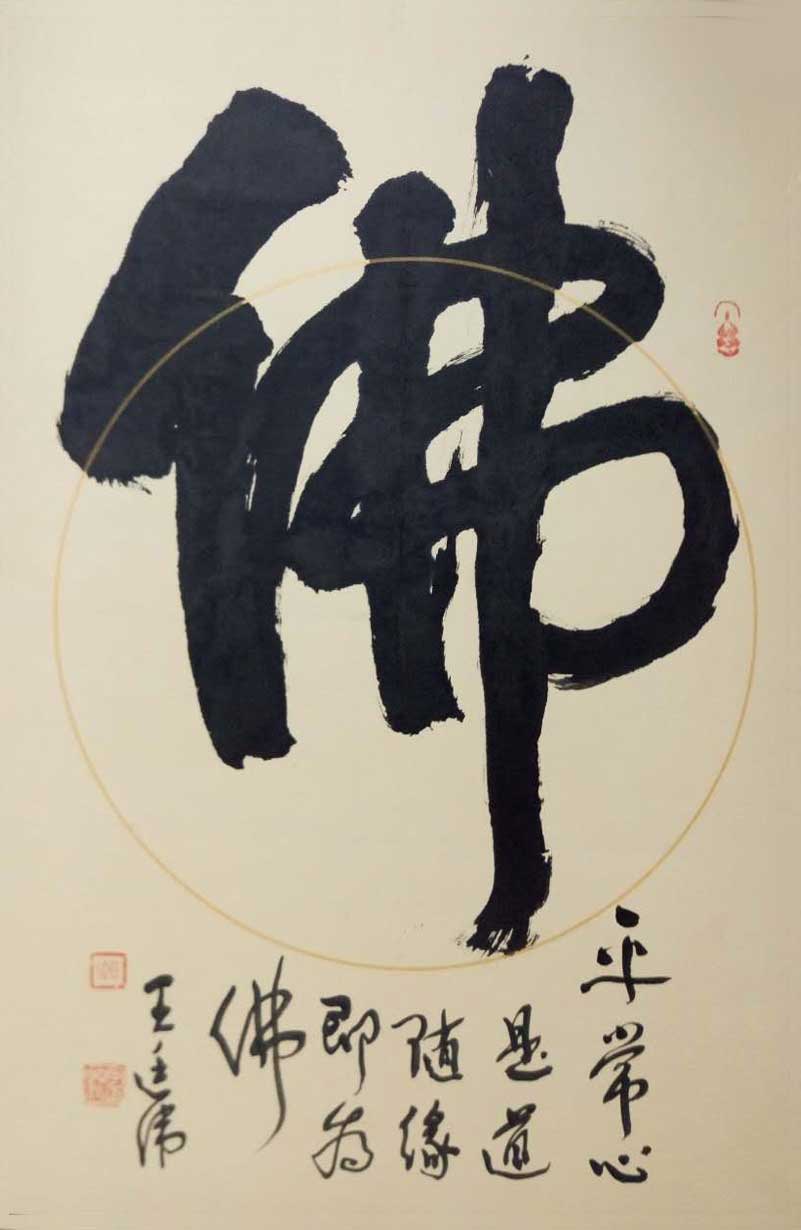 佛
平常心
是道
随缘
即为
佛
王廷沛